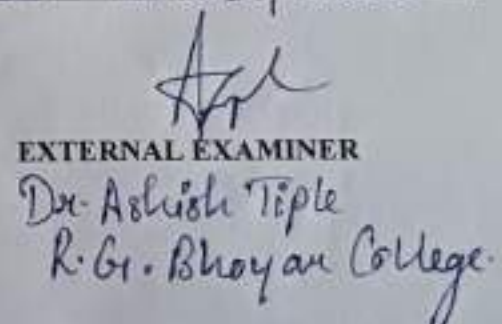 EXTERNAL EXAMINER
Dr. Ashish Tiple
R. G. Bhoyar College.